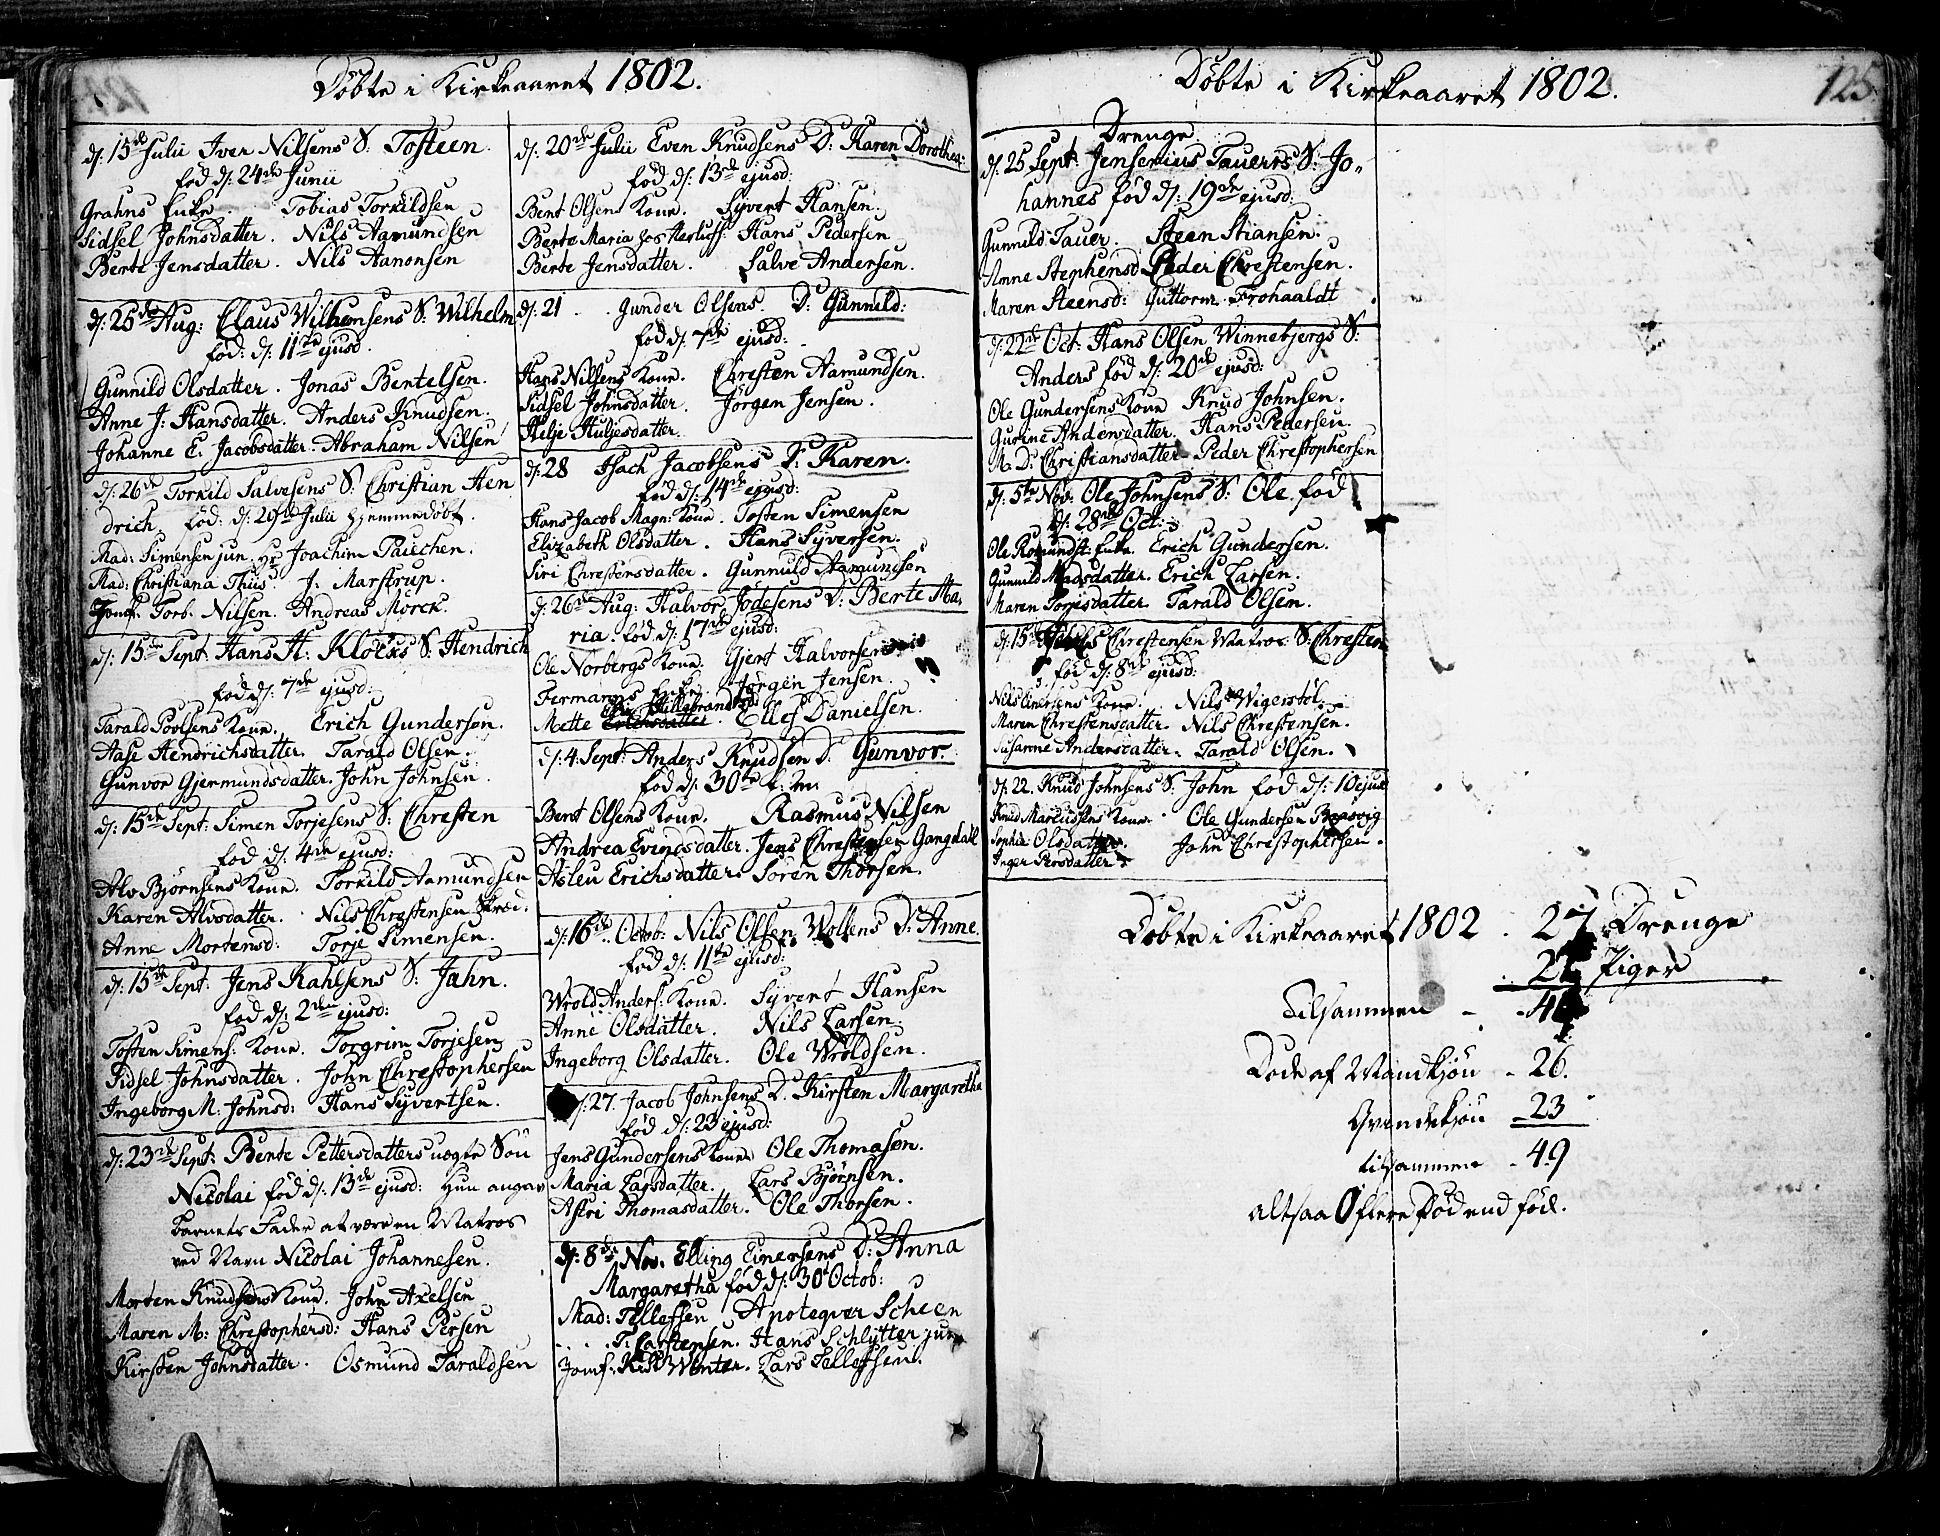 Döbte i Kirkeaaret 1802.
d: 15de Julii Iver Nilsens S: Tosteen.
fød d: 24de Junii
Grahns Enke. Tobias Torkildsen
Sidsel Johnsdatter. Nils Aamundsen
Berte Jensdatter. Nils Aanonsen
d: 25de Aug: Claus Wilhemsens S: Wilhelm
fød: d: 11te ejusd.
Gunnild Olsdatter. Jonas Bentelsen.
Anne J: Hansdatter. Anders Knudsen.
Johanne E. Jacobsdatter. Abraham Nilsen
d: 26de Torkild Salvesens S: Christian Hen
drich. fød: d: 29de Julii hjemmedöbt.
Mad: Simensen jun. Hr Joachim Pauchen.
Mad: Christiana Thiis. J. Marstrup.
Jomf: Torb. Nilsen. Andreas Mörck.
d: 15de Sept: Hans H. Klocks S: Hendrich
fød d: 7de ejusd:
Tarald Povlsens Kone. Erich Gundersen.
Aase Hendrichsdatter. Tarald Olsen.
Gunvor Gjermundsdatter. John Johnsen.
d: 15de Sept: Simen Torjesens S: Christen
fød d: 4de ejusd:
Alv Björnsens Kone. Torkild Aamundsen
Karen Alvsdatter. Nils Chrestensen
Anne Mortensd: Torje Simensen.
d: 15de Sept: Jens Kahlsens S: Jahn.
fød d: 2den ejusd:
Tosten Simens: Kone. Torgrim Torjesen
Sidsel Johnsdatter. John Chrestophersen
Ingeborg M. Johnsd: Hans Syvertsen.
d: 23de Sept: Bente Pettersdatters uægte Sön
Nicolai fød d: 13de ejusd: Hun angav
Barnets Fader at være en Matros
ved Navn Nicolai Johannesen.
Morten Knudsens Kone. John Axelsen
Maren M: Chrestophersd: Hans Persen
Kirsten Johnsdatter. Osmund Taraldsen
d: 20de Julii Even Knudsens D: Karen Dorothea:
fød d: 13de ejusd:
Bent Olsens Kone. Syvert Hansen.
Berte Maria Hans Pedersen
Berte Jensdatter. Salve Andersen.
d: 21 . . Gunder Olsens. D: Gunnild:
fød d: 7de ejusd:
Hans Nilsens Kone. Chresten Aamundsen.
Sidsel Johnsdatter. Jörgen Jensen.
Helje Heljesdatter.
d: 28 Isach Jacobsens D: Karen.
fød d: 14de ejusd:
Hans Jacob Magn: Kone. Tosten Simensen
Elizabeth Olsdatter. Hans Syversen.
Siri Chrestensdatter. Gunnuld Aamundsen
d: 26de Aug: Halvor Jödesens D: Berte Ma,
ria. fød d: 17de ejusd:
Ole Norbergs Kone. Gjert Halvorsen
Fermanns Enke. Jörgen Jensen.
Mette Ellef Danielsen.
d: 4. Sept: Anders Knudsen D: Gunvor.
fød d: 30te f: M.
Bent Olsens Kone. Rasmus Nilsen
Andrea Evindsdatter. Jens Chrestensen Gangdall
Aslen Erichsdatter. Sören Thorsen.
d: 16de. Octob: Nils Olsen Woltens D: Anne.
fød d: 11te ejusd:
Wrold Anders: Kone. Syvert Hansen
Anne Olsdatter. Nils Larsen.
Ingeborg Olsdatter. Ole Wroldsen.
d: 27. Jacob Johnsens D. Kirsten Margaretha
fød d: 23 ejusd:
Jens Gundersens Kone. Ole Thomasen.
Maria Larsdatter. Lars Björnsen.
Astri Thomasdatter. Ole Thorsen.
d: 8de Nov. Elling Einersens D: Anna
Margaretha fød d: 30 Octob:
Mad: Tellefsen Apoteqver Scheen
. . . T: Carstensen. Hans Schlytter jun
Jomf. Kirst Winter. Lars Tellefsen.
Döbte i Kirkeaaret 1802.
125.
Drenge
d: 25 Sept: Jensenius Tauers S: Jo,,
hannes fød d: 19de ejusd:
Gunnild Tauer. Steen Stiansen.
Anne Stephensd. Peder Chrestensen.
Maren Steensd: Guttorm Frohaaldt
d: 22de Oct: Hans Olsen Winnebjergs S:
Anders fød d: 20de ejusd:
Ole Gundersens Kone Knud Johnsen.
Gurine Andersdatter. Hans Pedersen.
M. D: Christiansdatter Peder Chrestophersen
d: 5te Nov: Ole Johnsens S: Ole. fød
d: 28de Oct:
Ole Romundst: Enke. Erich Gundersen.
Gunnild Madsdatter. Erich Larsen.
Maren Torjisdatter Tarald Olsen.
d: 15de Chrestensen Matros S: Chresten
fød d: 8de ejusd:
Nils Einersens Kone. Nils Wigerstöl.
Maren Chrestensdatter. Nils Chrestensen.
Susanne Andersdatter. Tarald Olsen.
d: 22. Knud Johnsens S: John fød d: 10 ejusd
Knud Kone. Ole Gundersen
Sophie Olsdatter. John Christophersen.
Inger Persdatter.
Döbte i Kirkeaaret 1802 . 27 Drenge
21 Piger
Tilsammen - - 48
Döde af Mandkjön - 26.
Qvindekjön - 23
tilsammen - 49
altsaa 0 flere död end fød.